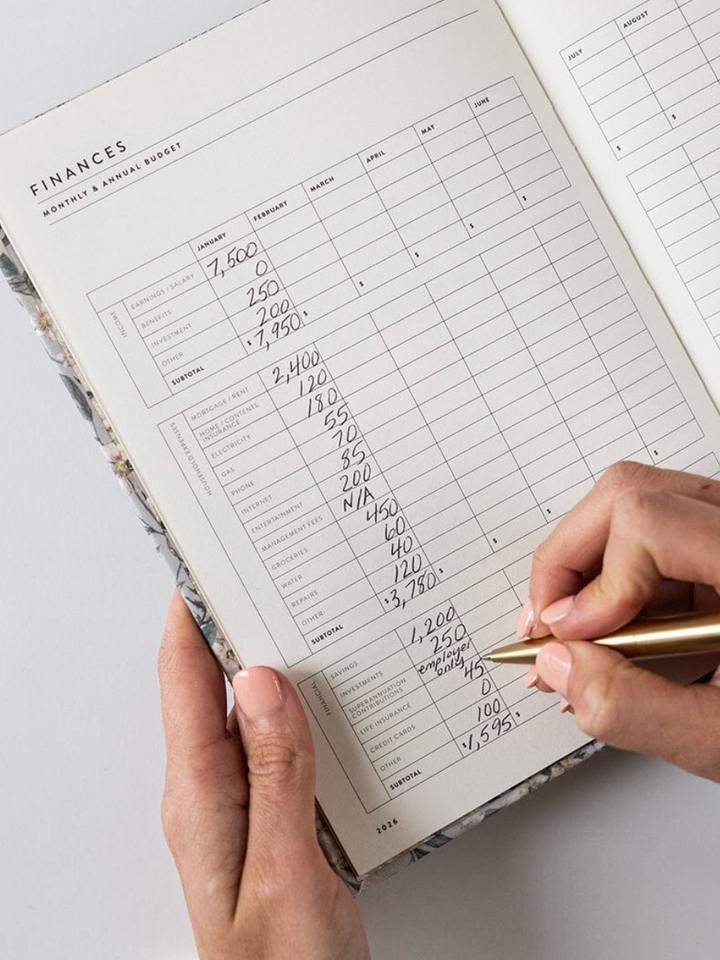 FINANCES
MONTHLY & ANNUAL BUDGET
JANUARY FEBRUARY MARCH APRIL MAY JUNE
INCOME
EARNINGS / SALARY 7,500
BENEFITS 0
INVESTMENT 250
OTHER 200
SUBTOTAL $7,950 $ $ $ $ $
HOUSEHOLD EXPENSES
MORTGAGE / RENT 2,400
HOME / CONTENTS INSURANCE 120
ELECTRICITY 180
GAS 55
PHONE 70
INTERNET 85
ENTERTAINMENT 200
MANAGEMENT FEES N/A
GROCERIES 450
WATER 60
REPAIRS 40
OTHER 120
SUBTOTAL $3,780 $ $ $ $
FINANCIAL
SAVINGS 1,200
INVESTMENTS 250
SUPERANNUATION CONTRIBUTIONS employer only
LIFE INSURANCE 45
CREDIT CARDS 0
OTHER 100
SUBTOTAL $1,595 $
2026
JULY AUGUST
$ $